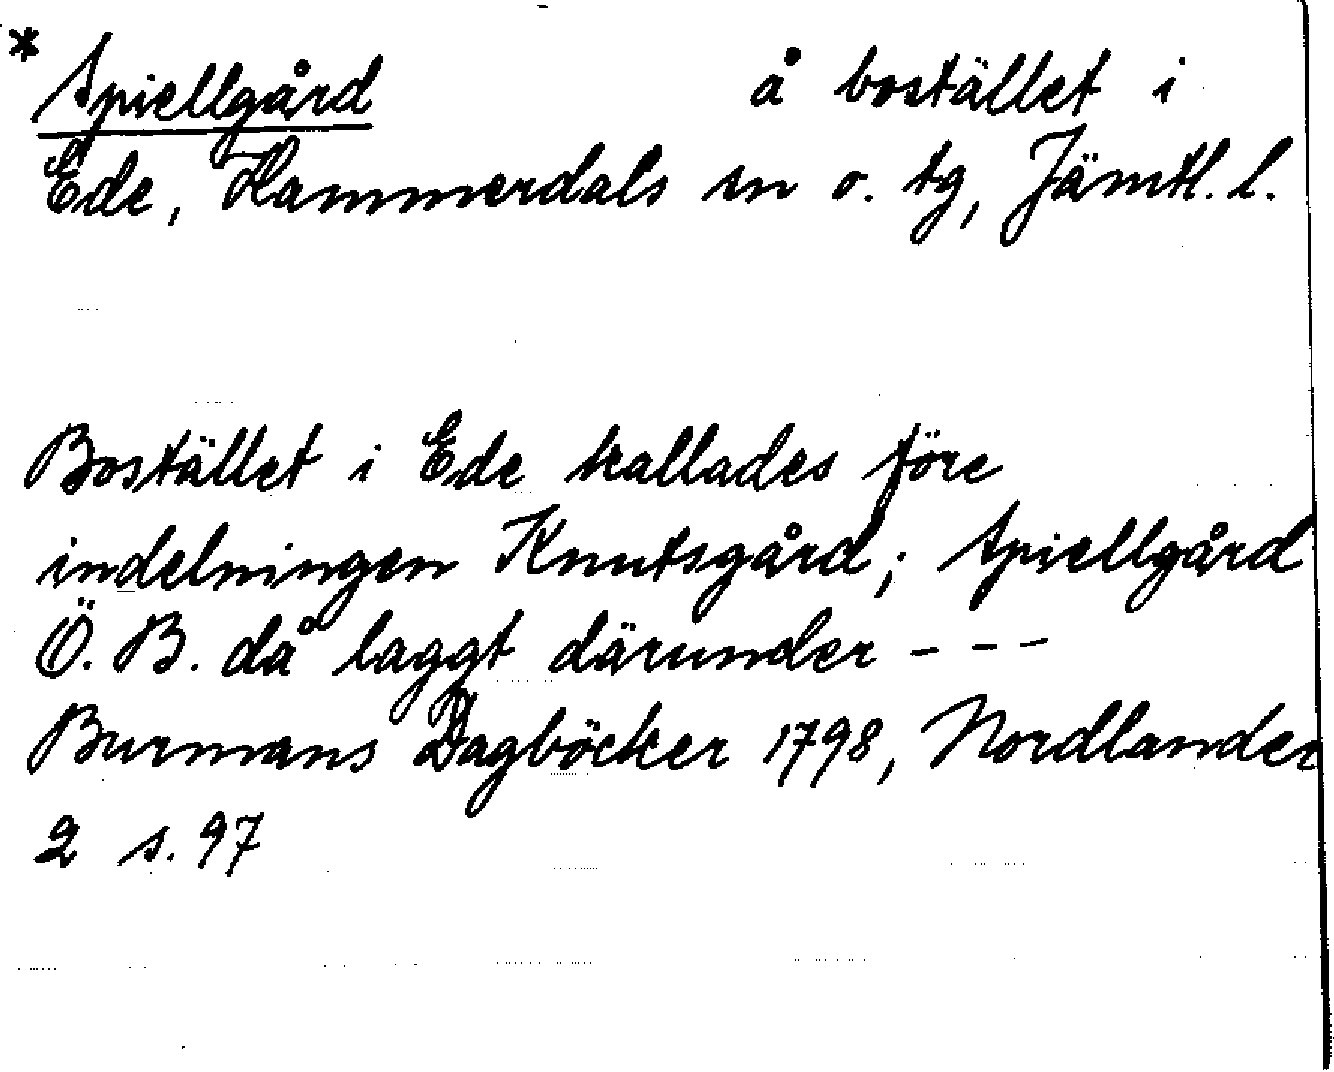 * Spiellgård å bostället i
Ede, Hammerdals sn o. tg, Jämtl. l.
Bostället i Ede kallades före
indelningen Knutsgård; Spiellgård
Ö. B. då laggt därunder - - -
Burmans Dagböcker 1798, Nordlander
2 s. 97